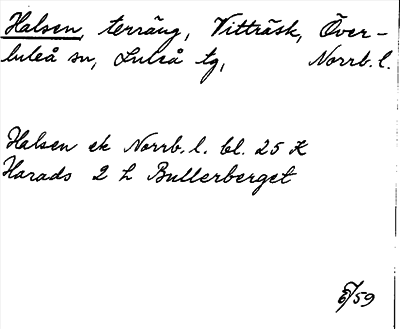 Halsen, terräng, Vitträsk, Över-
luleå sn, Luleå tg, Norrb.l.
Halsen ek Norrb.l. bl. 25 K
Harads 2 h Bullerberget
6/59